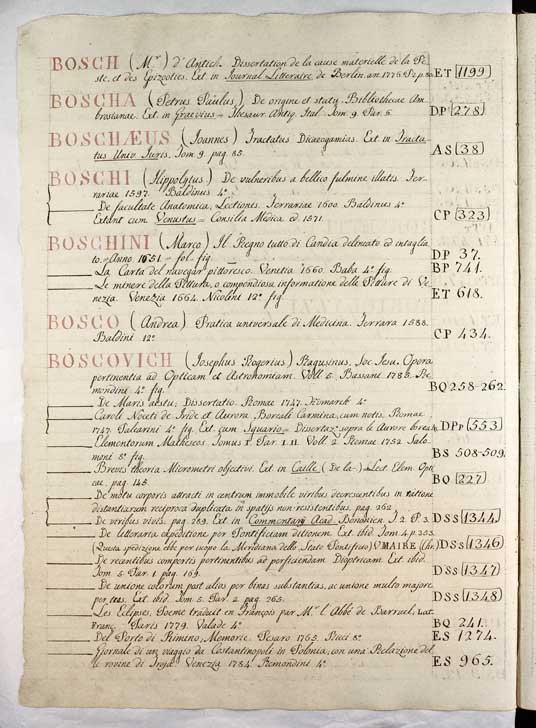 BOSCH (M.r) d'Antich. Dissertation de la cause materielle de la Pe-
ste, et des Epizooties. Ext. in Journal Litteraire de Berlin. an. 1776. Se p. 80. ET 1199
BOSCHA (Petrus Paulus) De origine et statu Bibliothecae Am-
brosianae. Ext. in Graevius = Thesaur. Antiq. Ital. Tom. 9. Par. 6. DP 278
BOSCHÆUS (Joannes) Tractatus Dicaeogamias. Ext. in Tracta-
tus Univ. Iuris. Tom. 9. pag. 85. AS 38
BOSCHI (Hippolytus) De vulneribus a bellico fulmine illatis. Fer-
rariae 1597. Baldinus 4.o
De facultate Anatomica, Lectiones. Ferrariae 1600 Baldinus 4.o
Extant cum Venustus = Consilia Medica ed. 1571. CP 323
BOSCHINI (Marco) Il Regno tutto di Candia delineato ed intaglia
to. Anno 1651 = fol. fig. DP 37.
La Carta del navegar pittoresco. Venetia 1660. Baba 4.o fig. BP 741.
Le minere della Pittura, o compendiosa informatione delle Pitture di Ve-
nezia. Venezia 1664. Nicolini 12.o fig. ET 618.
BOSCO (Andrea) Pratica universale di Medicina. Ferrara 1588.
Baldini 12.o CP 434.
BOSCOVICH (Josephus Rogerius) Ragusinus. Soc. Jesu. Opera
pertinentia ad Opticam et Astronomiam. Voll. 5. Bassani 1785. Re-
mondini 4.o fig. BQ 258-262.
De Maris aestu; Dissertatio. Romae 1747. Komarek 4.o
Caroli Noceti de Iride et Aurora Boreali Carmina, cum notis. Romae
1747. Palarini 4.o fig. Ext. cum Squario = Dissertaz.e sopra le Aurore boreali. DPp 553
Elementorum Matheseos Tomus I. Par. I. II. Voll. 2. Romae 1752. Salo
moni 8.o fig. BS 508-509.
Brevis theoria Micrometri objectivi. Ext. in Caille (De la) = Lect. Elem. Opti-
cae. pag. 145. BO 227
De motu corporis attracti in centrum immobile viribus decrescentibus in ratione
distantiarum reciproca duplicata in spatiis non resistentibus. pag. 262
De viribus vivis. pag. 289. Ext. in Commentarij Acad. Bononien. T. 2. P. 3. DSS 1344
De litteraria expeditione per Pontificiam ditionem. Ext. ibid. Tom. 4. p. 353
(Questa spedizione ebbe per iscopo la Meridiana dello Stato Pontificio) V. MAIRE (Chr.) DSS 1346
De recentibus compertis pertinentibus ad perficiendam Dioptricam. Ext. ibid.
Tom. 5. Par. 1. pag. 169. DSS 1347
De unione colorum post alios per binas substantias, ac unione multo majore
per tres. Ext. ibid. Tom. 5. Par. 2. pag. 265. DSS 1348
Les Eclipses, Poeme traduit en François par M.r l'Abbé de Barruel, Lat.
Franç. Paris 1779. Valade 4.o BQ 241.
Del Porto di Rimino; Memorie. Pesaro 1765. 8.o ES 1274.
Giornale di un viaggio da Costantinopoli in Polonia, con una Relazione del-
le rovine di Troja. Venezia 1784. Remondini 4.o ES 965.